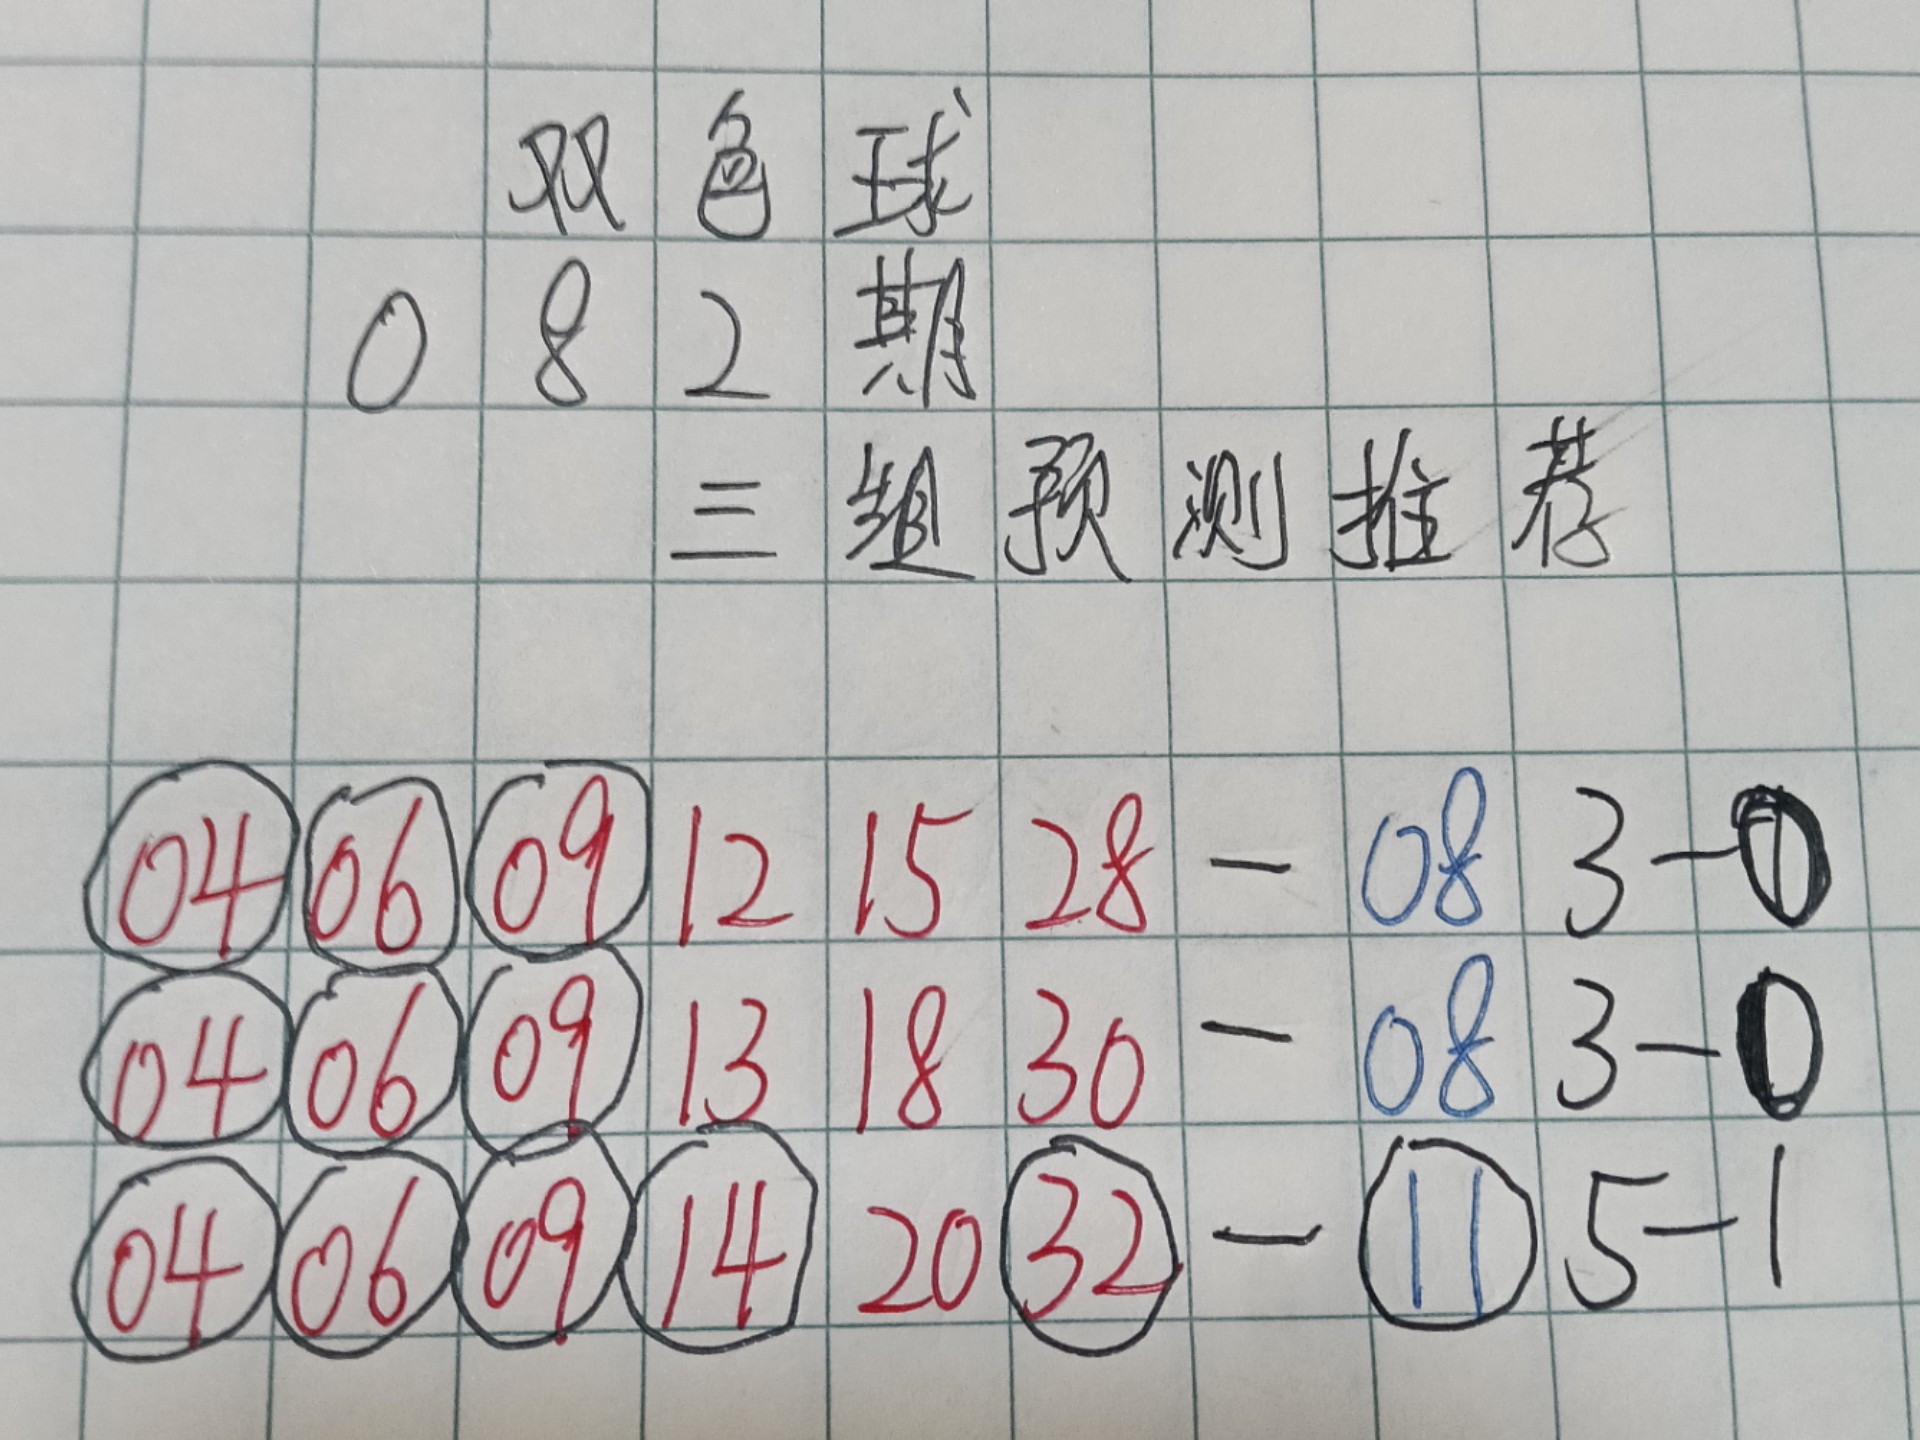 双色球
082期
三组预测推荐
04 06 09 12 15 28 - 08 3-0
04 06 09 13 18 30 - 08 3-0
04 06 09 14 20 32 - 11 5-1